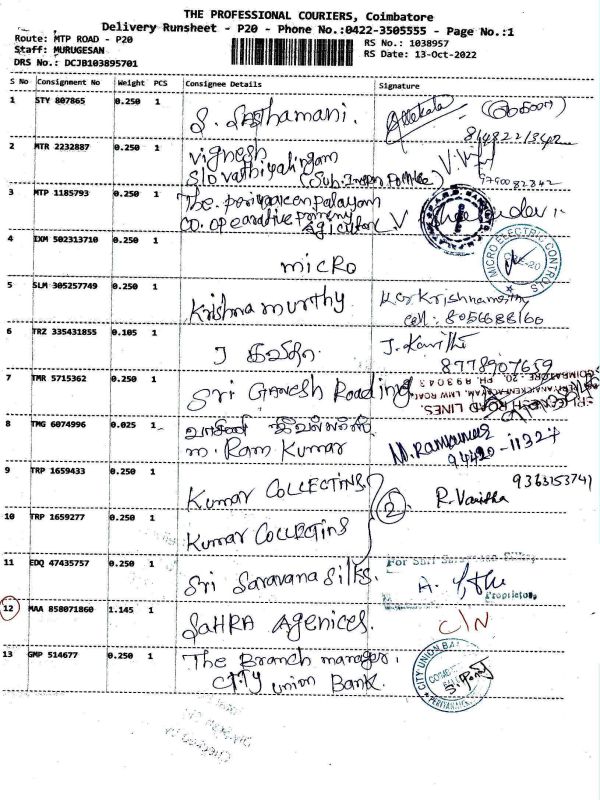 THE PROFESSIONAL COURIERS, Coimbatore
Delivery Runsheet - P20 - Phone No.:0422-3505555 - Page No.:1
Route: MTP ROAD - P20
RS No.: 1038957
Staff: MURUGESAN
RS Date: 13-Oct-2022
DRS No.: DCJB103895701
S No Consignment No Weight PCS Consignee Details Signature
1 STY 807865 0.250 1 S. Santhamani.
2 MTR 2232887 0.250 1 Vignesh
S/O Vathiyalingam
(Sub.Inspn Police)
9790082342
3 MTP 1185793 0.250 1 The. periyanaicenpalayam
co.operative primery
Agiculture
4 EXM 502313710 0.250 1 micro
MICRO ELECTRIC CONTROLS
5 SLM 305257749 0.250 1 Krishna murthy
Krishnamurthy
cell: 8056688160
6 TRZ 335431855 0.105 1 J கவிதா.
J. Kavitha
8778907659
7 TMR 5715362 0.250 1 Sri GANESH Roading
SRI GANESH ROAD LINES.
8 TMG 6074996 0.025 1
m. Ram Kumar
M. Ramkumar
94420-11327
9 TRP 1659433 0.250 1 Kumar COLLECTINS
2
R. Vanitha
9363153741
10 TRP 1659277 0.250 1 Kumar COLLECTINS
11 EDQ 47435757 0.250 1 Sri Saravana Silks.
For
Proprietor.
12 MAA 858071860 1.145 1 SAHRA Agenices.
C/N
13 GMP 514677 0.250 1 The Branch manager.
CITY union Bank.
CITY UNION BA